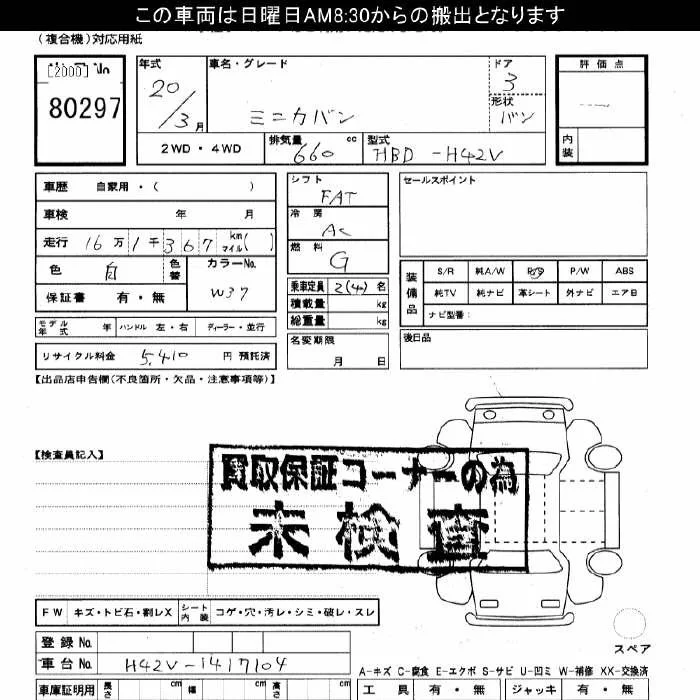 この車両は日曜日AM8:30からの搬出となります
(複合機)対応用紙
[2000] No
80297
年式 20/3月
車名・グレード ミニカバン
ドア 3
形状 バン
評価点
内装
2WD・4WD
排気量 660 cc
型式 HBD-H42V
車歴 自家用・( )
車検 年 月
走行 16万1千367 km マイル( )
色 白 色替
カラーNo. W37
保証書 有・無
モデル年式 年 ハンドル 左・右 ディーラー・並行
リサイクル料金 5,410 円 預託済
シフト FAT
冷房 AC
燃料 G
乗車定員 2(4)名
積載量 kg
総重量 kg
名変期限 月 日
セールスポイント
装備品
S/R 純A/W P/S P/W ABS
純TV 純ナビ 革シート 外ナビ エアB
ナビ型番:
後日品
【出品店申告欄(不良箇所・欠品・注意事項等)】
【検査員記入】
買取保証コーナーの為
未検査
FW キズ・トビ石・割レX シート内装 コゲ・穴・汚レ・シミ・破レ・スレ
スペア
登録No.
車台No. H42V-1417104
A-キズ C-腐食 E-エクボ S-サビ U-凹ミ W-補修 XX-交換済
車庫証明用 長さ cm 幅 cm 高さ cm
工具 有・無 ジャッキ 有・無